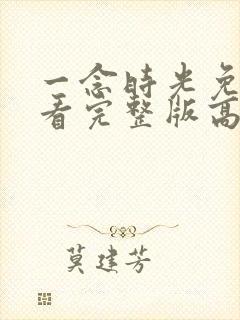 一念时光免
看完整版高
莫建芳